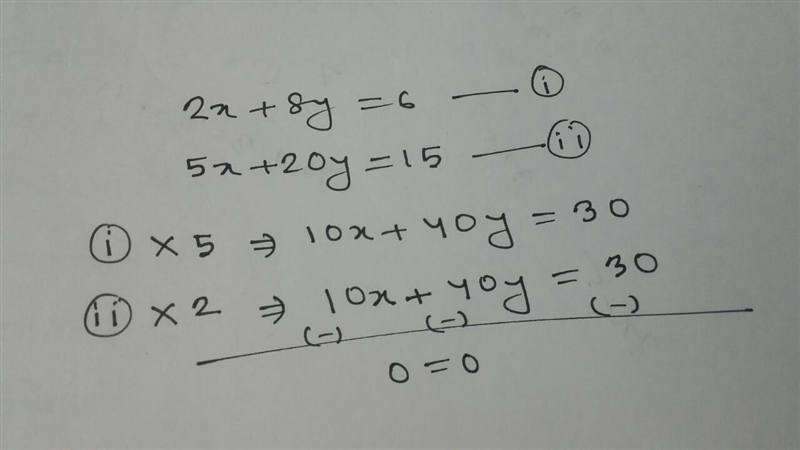 2x + 8y = 6 —— (i)
5x + 20y = 15 —— (ii)
(i) × 5 ⇒ 10x + 40y = 30
(ii) × 2 ⇒ 10x + 40y = 30
(-) (-) (-)
0 = 0